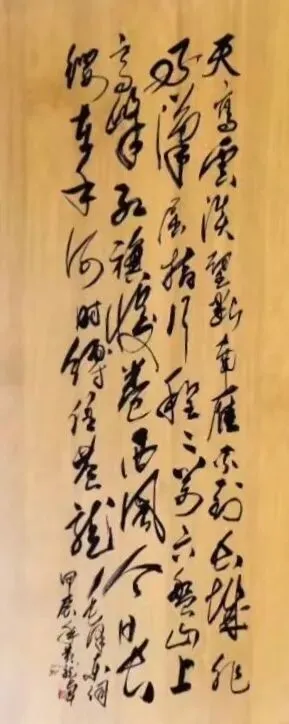 天高雲淡望斷南雁不到長城非
好漢屈指行程二萬六盤山上
高峰紅旗漫卷西風今日長
纓在手何時縛住蒼龍 毛澤東詞
甲辰年